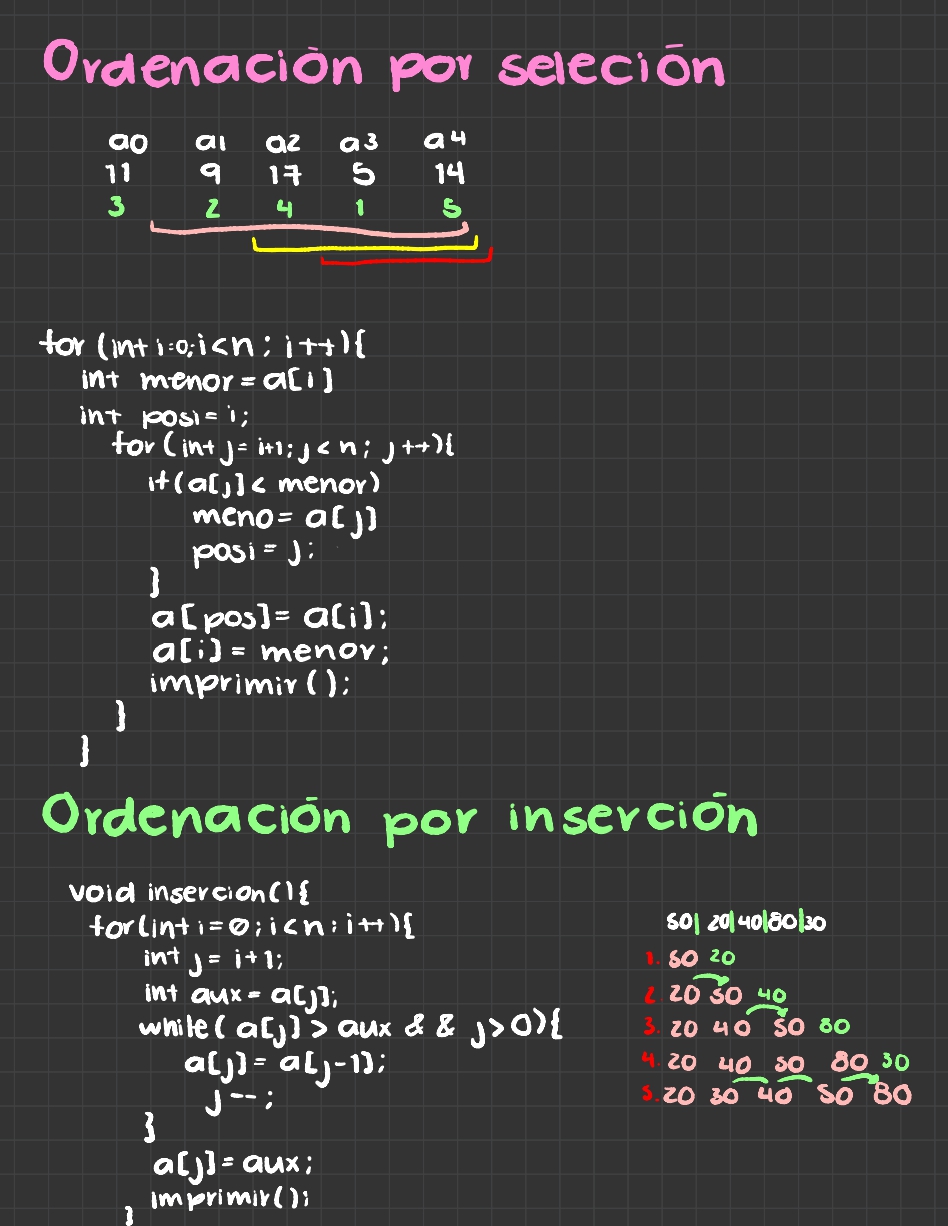 Ordenación por seleción
a0 a1 a2 a3 a4
11 9 17 5 14
3 2 4 1 5
for (int i=0;i<n; i++){
int menor = a[i]
int posi = i;
for (int j= i+1; j < n; j++){
if(a[j]< menor)
meno= a[j]
posi = j;
}
a[pos]= a[i];
a[i] = menor;
imprimir();
}
}
Ordenación por inserción
void insercion(){
for(int i=0;i<n;i++){
int j = i+1;
int aux = a[j];
while( a[j] > aux & & j>0){
a[j] = a[j-1];
j--;
}
a[j]= aux;
imprimir();
}
50| 20|40|80|30
1. 50 20
2. 20 50 40
3. 20 40 50 80
4. 20 40 50 80 30
5. 20 30 40 50 80